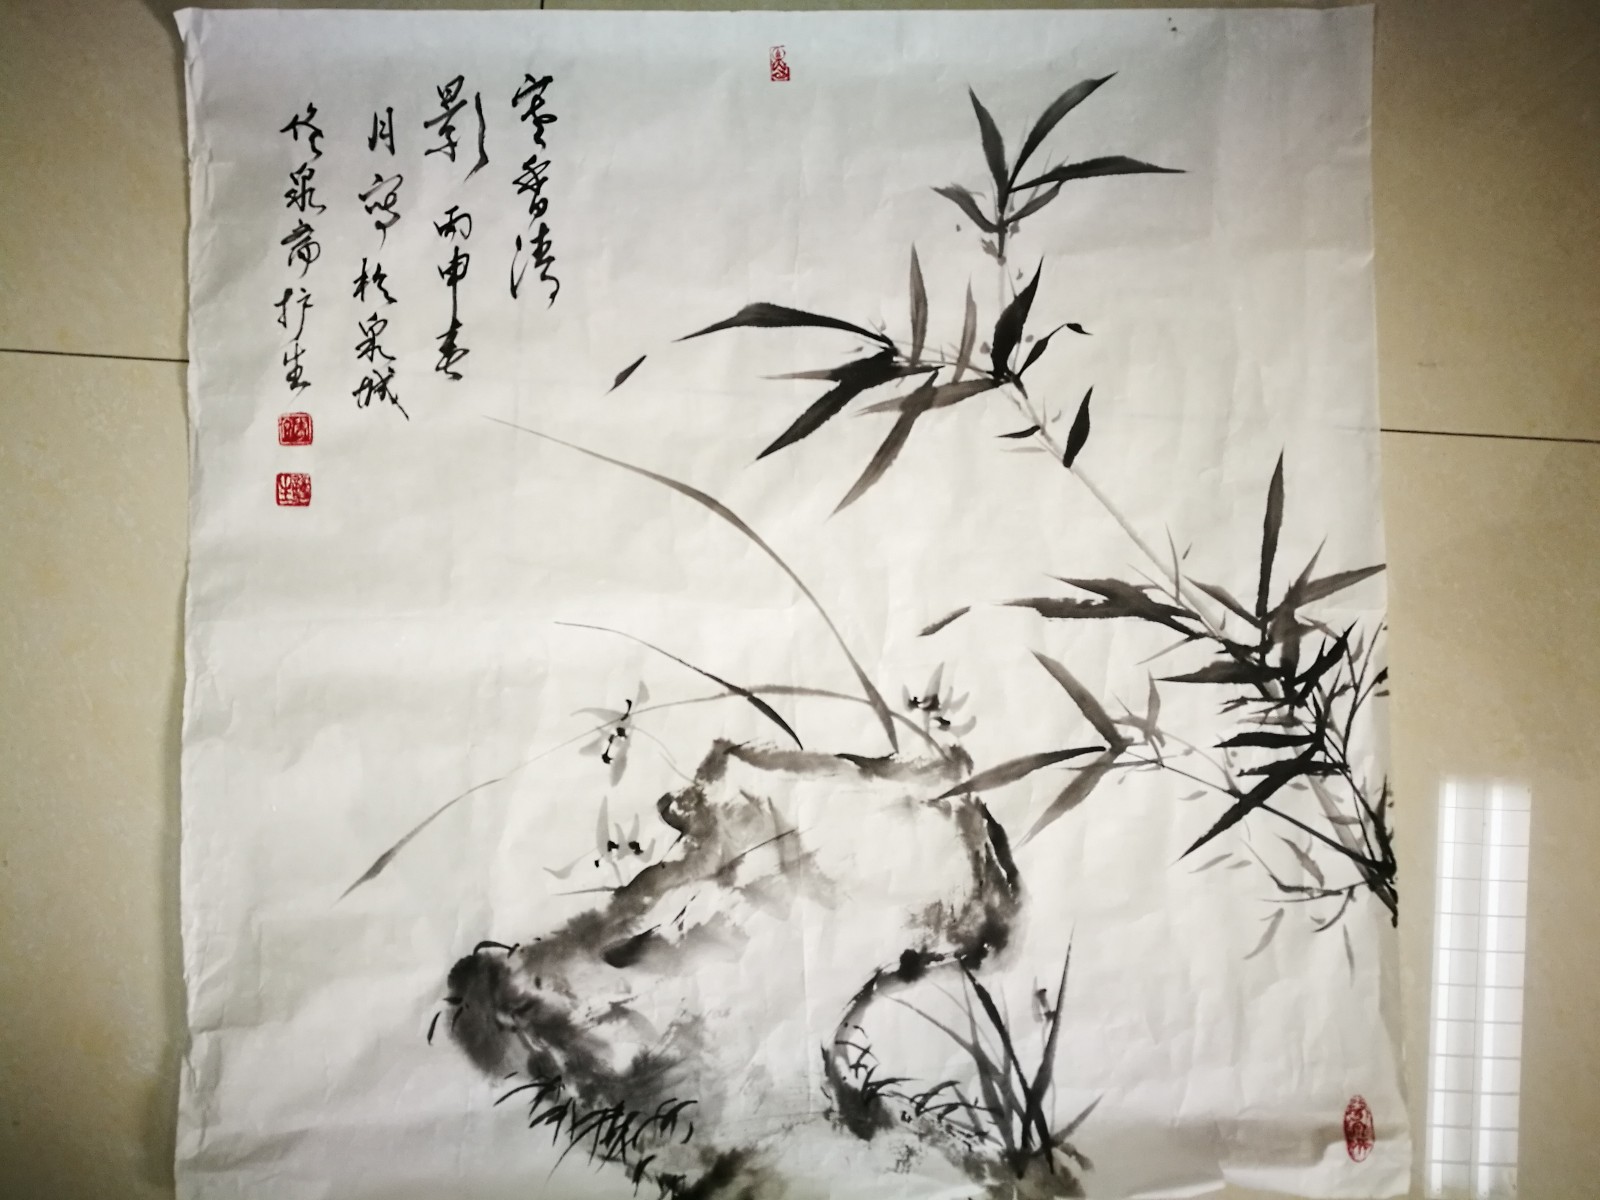 寒香清
影 丙申春
月写於泉城
佟泉斋护生